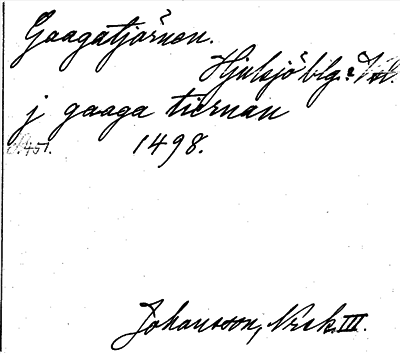 Gaagatjärnen.
Hjulsjö blg. i Vstl.
j gaaga tiernan
S. 451. 1498.
Johansson, Norsk. III.